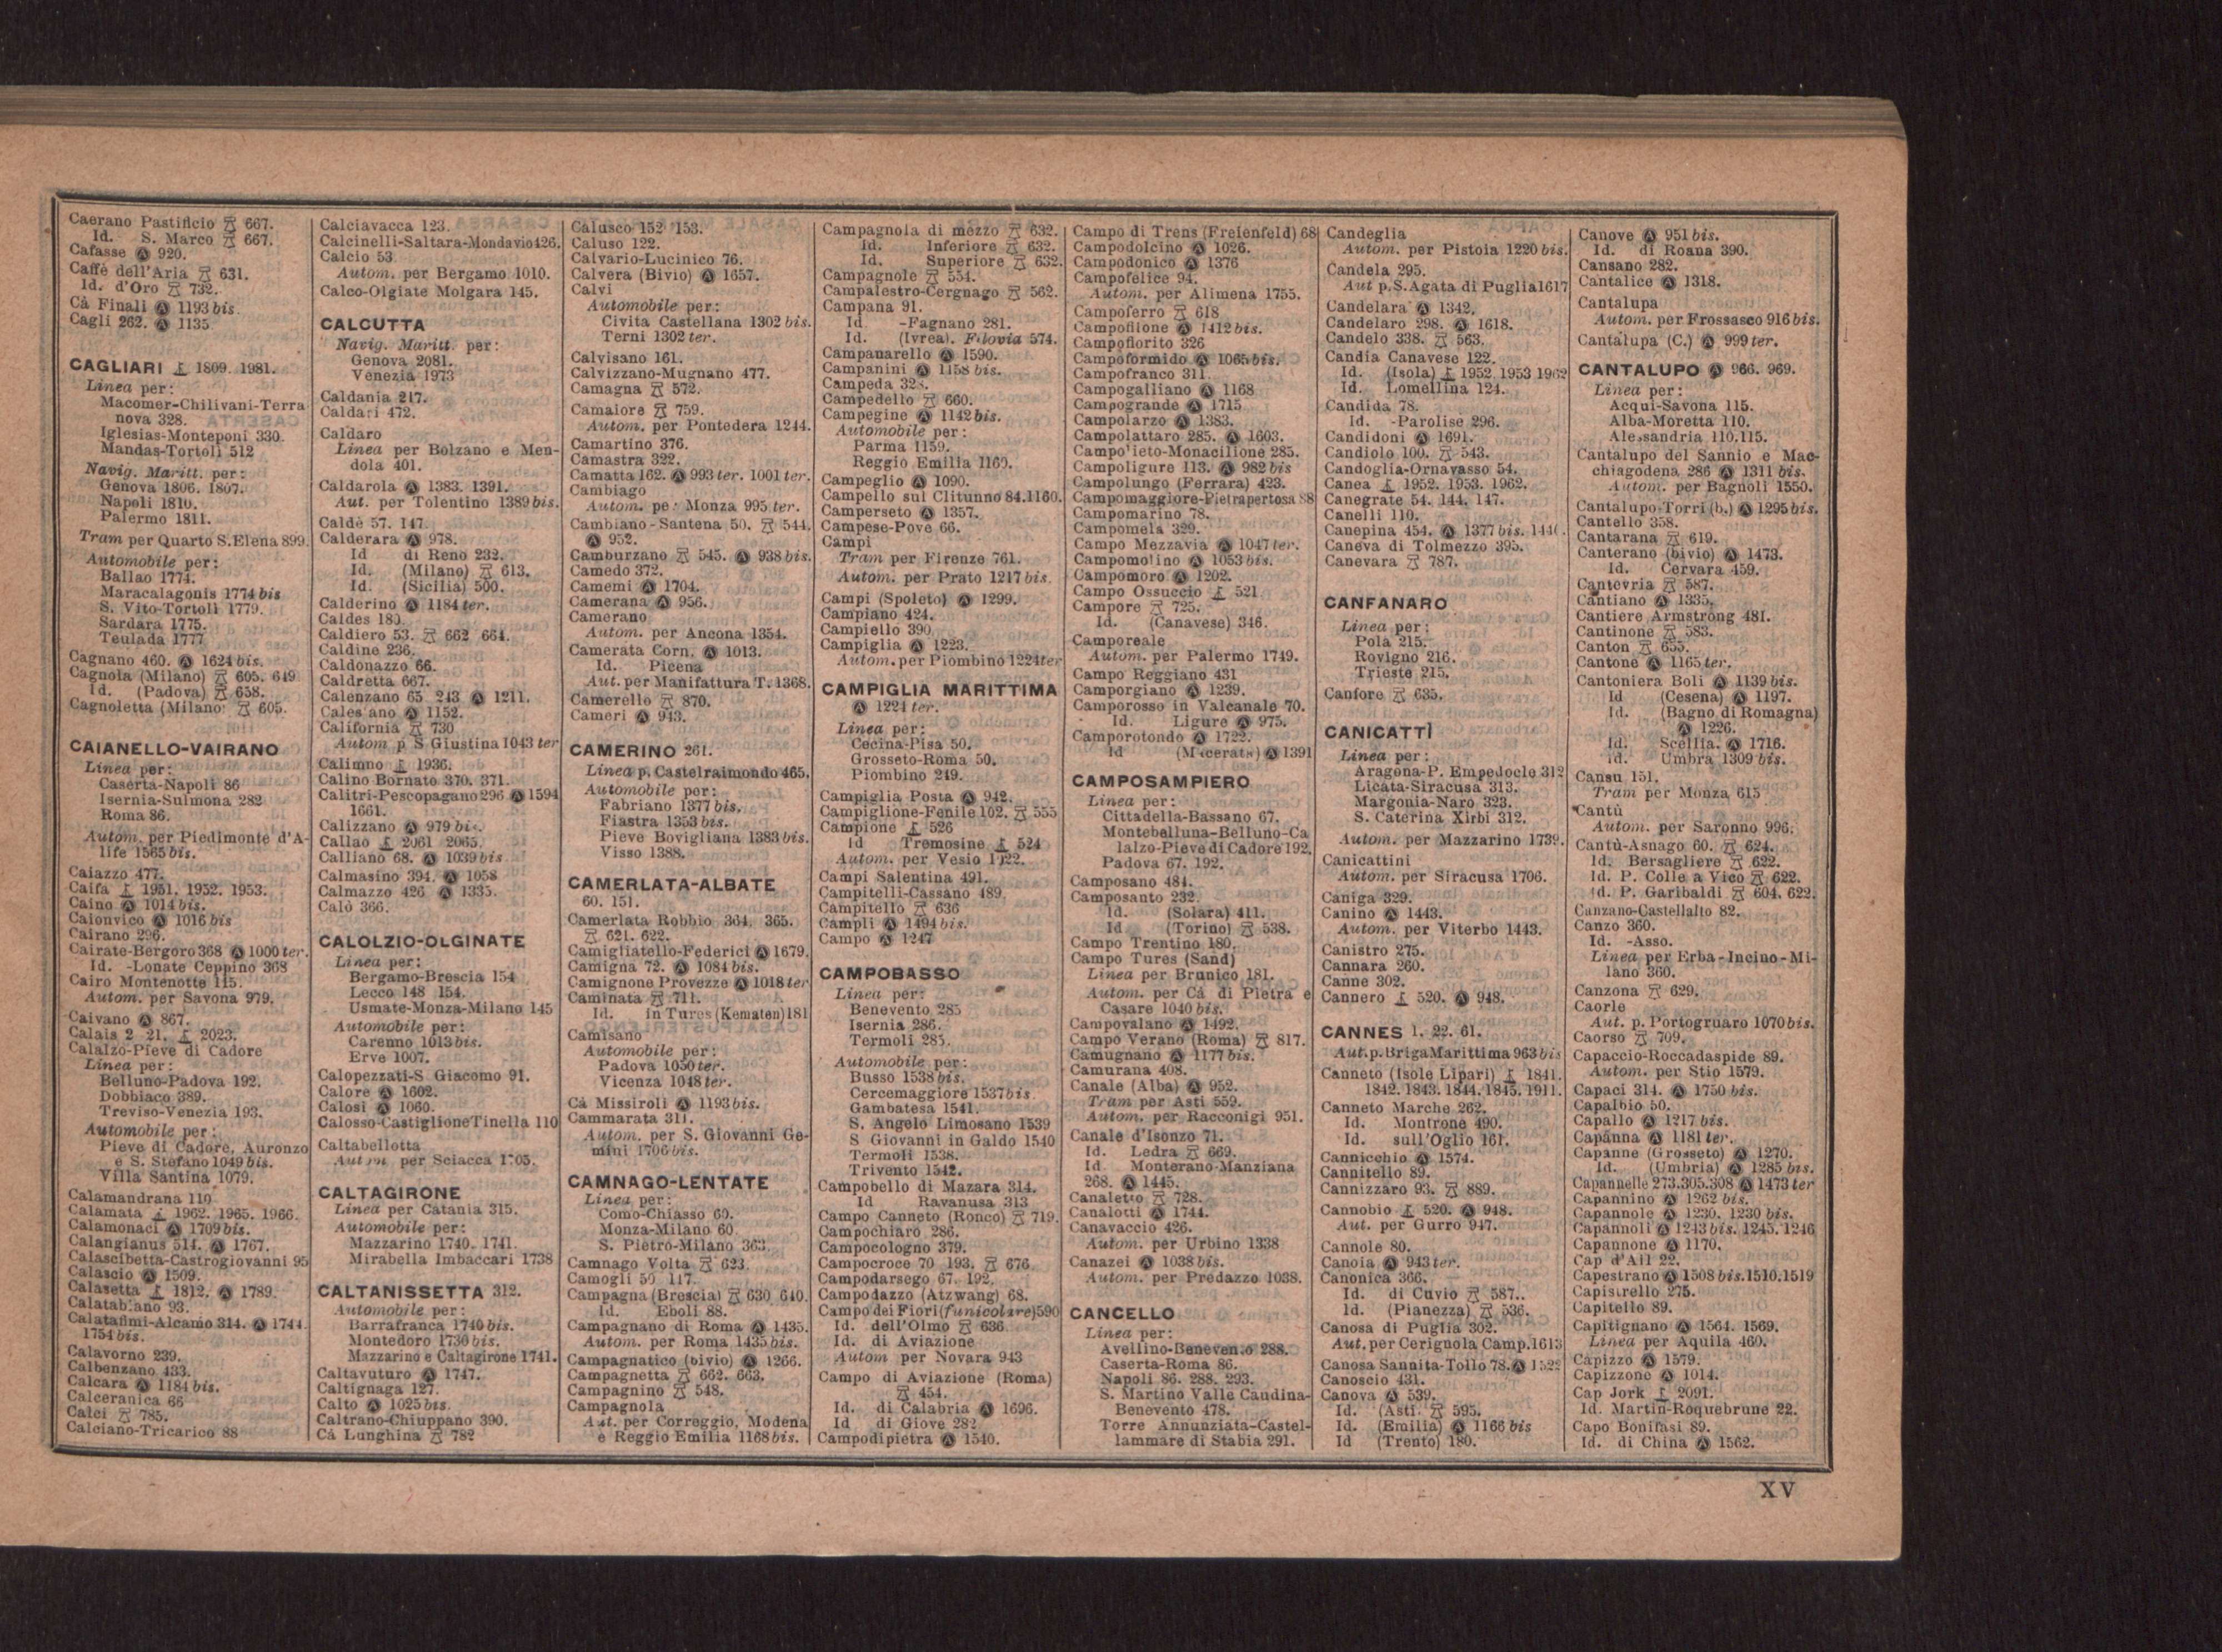 Caerano Pastificio 667.
Id. S. Marco 667.
Cafasse Ⓐ 920.
Caffè dell'Aria 631.
Id. d'Oro 732.
Cà Finali Ⓐ 1193 bis
Cagli 262. Ⓐ 1135
CAGLIARI 1809. 1981.
Linea per:
Macomer-Chilivani-Terra
nova 328.
Iglesias-Monteponi 330.
Mandas-Tortolì 512
Navig. Maritt. per:
Genova 1806. 1807.
Napoli 1810.
Palermo 1811.
Tram per Quarto S. Elena 899.
Automobile per:
Ballao 1774.
Maracalagonis 1774 bis
S. Vito-Tortolì 1779.
Sardara 1775.
Teulada 1777
Cagnano 460. Ⓐ 1624 bis.
Cagnola (Milano) 605. 649
Id. (Padova) 658.
Cagnoletta (Milano) 605.
CAIANELLO-VAIRANO
Linea per:
Caserta-Napoli 86
Isernia-Sulmona 282
Roma 86.
Autom. per Piedimonte d'A-
life 1565 bis.
Caiazzo 477.
Caifa 1951. 1952. 1953.
Caino Ⓐ 1014 bis.
Caionvico Ⓐ 1016 bis
Cairano 296.
Cairate-Bergoro 368 Ⓐ 1000 ter.
Id. -Lonate Ceppino 368
Cairo Montenotte 115.
Autom. per Savona 979.
Caivano Ⓐ 867.
Calais 2 21. 2023.
Calalzo-Pieve di Cadore
Linea per:
Belluno-Padova 192.
Dobbiaco 389.
Treviso-Venezia 193.
Automobile per:
Pieve di Cadore, Auronzo
e S. Stefano 1049 bis.
Villa Santina 1079.
Calamandrana 110
Calamata 1962. 1965. 1966.
Calamonaci Ⓐ 1709 bis.
Calangianus 514. Ⓐ 1767.
Calascibetta-Castrogiovanni 95
Calascio Ⓐ 1509.
Calasetta 1812. Ⓐ 1789.
Calatabiano 93.
Calatafimi-Alcamo 314. Ⓐ 1744.
1754 bis.
Calavorno 239.
Calbenzano 433.
Calcara Ⓐ 1184 bis.
Calceranica 66
Calci 785.
Calciano-Tricarico 88
Calciavacca 123.
Calcinelli-Saltara-Mondavio 426.
Calcio 53
Autom. per Bergamo 1010.
Calco-Olgiate Molgara 145.
CALCUTTA
Navig. Maritt. per:
Genova 2081.
Venezia 1973
Caldania 217.
Caldari 472.
Caldaro
Linea per Bolzano e Men-
dola 401.
Caldarola Ⓐ 1383. 1391.
Aut. per Tolentino 1389 bis.
Caldè 57. 147.
Calderara Ⓐ 978.
Id di Reno 232.
Id. (Milano) 613.
Id. (Sicilia) 500.
Calderino Ⓐ 1184 ter.
Caldes 180.
Caldiero 53. 662 664.
Caldine 236.
Caldonazzo 66.
Caldretta 667.
Calenzano 65 243 Ⓐ 1211.
Calestano Ⓐ 1152.
California 730
Autom p S Giustina 1043 ter
Calimno 1936.
Calino Bornato 370. 371.
Calitri-Pescopagano 296 Ⓐ 1594
1661.
Calizzano Ⓐ 979 bis.
Callao 2061 2065.
Calliano 68. Ⓐ 1039 bis
Calmasino 394. Ⓐ 1058
Calmazzo 426 Ⓐ 1335.
Calò 366.
CALOLZIO-OLGINATE
Linea per:
Bergamo-Brescia 154
Lecco 148 154.
Usmate-Monza-Milano 145
Automobile per:
Carenno 1013 bis.
Erve 1007.
Calopezzati-S Giacomo 91.
Calore Ⓐ 1602.
Calosi Ⓐ 1060.
Calosso-Castiglione Tinella 110
Caltabellotta
Autom per Sciacca 1705.
CALTAGIRONE
Linea per Catania 315.
Automobile per:
Mazzarino 1740. 1741.
Mirabella Imbaccari 1738
CALTANISSETTA 312.
Automobile per:
Barrafranca 1740 bis.
Montedoro 1730 bis.
Mazzarino e Caltagirone 1741.
Caltavuturo Ⓐ 1747.
Caltignaga 127.
Calto Ⓐ 1025 bis.
Caltrano-Chiuppano 390.
Cà Lunghina 782
Calusco 152 153.
Caluso 122.
Calvario-Lucinico 76.
Calvera (Bivio) Ⓐ 1657.
Calvi
Automobile per:
Civita Castellana 1302 bis.
Terni 1302 ter.
Calvisano 161.
Calvizzano-Mugnano 477.
Camagna 572.
Camaiore 759.
Autom. per Pontedera 1244.
Camartino 376.
Camastra 322.
Camatta 162. Ⓐ 993 ter. 1001 ter.
Cambiago
Autom. per Monza 995 ter.
Cambiano-Santena 50. 544.
Ⓐ 952.
Camburzano 545. Ⓐ 938 bis.
Camedo 372.
Camemi Ⓐ 1704.
Camerana Ⓐ 956.
Camerano
Autom. per Ancona 1354.
Camerata Corn. Ⓐ 1013.
Id. Picena
Aut. per Manifattura T. 1368.
Camerello 870.
Cameri Ⓐ 943.
CAMERINO 261.
Linea p. Castelraimondo 465.
Automobile per:
Fabriano 1377 bis.
Fiastra 1353 bis.
Pieve Bovigliana 1383 bis.
Visso 1388.
CAMERLATA-ALBATE
60. 151.
Camerlata Robbio 364. 365.
621. 622.
Camigliatello-Federici Ⓐ 1679.
Camigna 72. Ⓐ 1084 bis.
Camignone Provezze Ⓐ 1018 ter
Caminata 711.
Id. in Tures (Kematen) 181
Camisano
Automobile per:
Padova 1050 ter.
Vicenza 1048 ter.
Cà Missiroli Ⓐ 1193 bis.
Cammarata 311.
Autom. per S. Giovanni Ge-
mini 1706 bis.
CAMNAGO-LENTATE
Linea per:
Como-Chiasso 60.
Monza-Milano 60
S. Pietro-Milano 363.
Camnago Volta 623
Camogli 50 117.
Campagna (Brescia) 630 640.
Id. Eboli 88.
Campagnano di Roma Ⓐ 1435.
Autom. per Roma 1435 bis.
Campagnatico (bivio) Ⓐ 1266.
Campagnetta 662. 663.
Campagnino 548.
Campagnola
Aut. per Correggio, Modena
e Reggio Emilia 1168 bis.
Campagnola di mezzo 632.
Id. Inferiore 632.
Id. Superiore 632.
Campagnole 554.
Campalestro-Cergnago 562.
Campana 91.
Id. -Fagnano 281.
Id. (Ivrea). Filovia 574.
Campanarello Ⓐ 1590.
Campanini Ⓐ 1158 bis.
Campeda 328.
Campedello 660.
Campegine Ⓐ 1142 bis.
Automobile per:
Parma 1159.
Reggio Emilia 1160.
Campeglio Ⓐ 1090.
Campello sul Clitunno 84. 1160.
Camperseto Ⓐ 1357.
Campese-Pove 66.
Campi
Tram per Firenze 761.
Autom. per Prato 1217 bis.
Campi (Spoleto) Ⓐ 1299.
Campiano 424.
Campiello 390
Campiglia Ⓐ 1223.
Autom. per Piombino 1224 ter
CAMPIGLIA MARITTIMA
Ⓐ 1224 ter.
Linea per:
Cecina-Pisa 50.
Grosseto-Roma 50.
Piombino 249.
Campiglia Posta Ⓐ 942.
Campiglione-Fenile 102. 555
Campione 526
Id Tremosine 524
Autom. per Vesio 1022.
Campi Salentina 491.
Campitelli-Cassano 489.
Campitello 636
Campli Ⓐ 1494 bis.
Campo Ⓐ 1247
CAMPOBASSO
Linea per:
Benevento 285
Isernia 286.
Termoli 285.
Automobile per:
Busso 1538 bis.
Cercemaggiore 1537 bis
Gambatesa 1541.
S. Angelo Limosano 1539
S Giovanni in Galdo 1540
Termoli 1538.
Trivento 1542.
Campobello di Mazara 314.
Id Ravanusa 313
Campo Canneto (Ronco) 719.
Campochiaro 286.
Campocologno 379.
Campocroce 70 193. 676
Campodarsego 67. 192.
Campodazzo (Atzwang) 68.
Campo dei Fiori (funicolare) 590
Id. dell'Olmo 636
Id. di Aviazione
Autom per Novara 943
Campo di Aviazione (Roma)
454.
Id. di Calabria Ⓐ 1696.
Id di Giove 282
Campodipietra Ⓐ 1540.
Campo di Trens (Freienfeld) 68
Campodolcino Ⓐ 1026.
Campodonico Ⓐ 1376
Campofelice 94.
Autom. per Alimena 1755.
Campoferro 618
Campofilone Ⓐ 1412 bis.
Campoflorito 326
Campoformido Ⓐ 1065 bis.
Campofranco 311.
Campogalliano Ⓐ 1168
Campogrande Ⓐ 1715
Campolarzo Ⓐ 1383.
Campolattaro 285. Ⓐ 1603.
Campolieto-Monacilione 285.
Campoligure 113. Ⓐ 982 bis
Campolungo (Ferrara) 423.
Campomaggiore-Pietrapertosa 88
Campomarino 78.
Campomela 329.
Campo Mezzavia Ⓐ 1047 ter.
Campomolino Ⓐ 1053 bis.
Campomoro Ⓐ 1202.
Campo Ossuccio 521
Campore 725.
Id. (Canavese) 346.
Camporeale
Autom. per Palermo 1749.
Campo Reggiano 431
Camporgiano Ⓐ 1239.
Camporosso in Valcanale 70.
Id. Ligure Ⓐ 975.
Camporotondo Ⓐ 1722.
Id (Macerata) Ⓐ 1391
CAMPOSAMPIERO
Linea per:
Cittadella-Bassano 67.
Montebelluna-Belluno-Ca
lalzo-Pieve di Cadore 192.
Padova 67. 192.
Camposano 484.
Camposanto 232.
Id. (Solara) 411.
Id (Torino) 538.
Campo Trentino 180.
Campo Tures (Sand)
Linea per Brunico 181.
Autom. per Cà di Pietra e
Casare 1040 bis.
Campovalano Ⓐ 1492.
Campo Verano (Roma) 817.
Camugnano Ⓐ 1177 bis.
Camurana 408.
Canale (Alba) Ⓐ 952.
Tram per Asti 559.
Autom. per Racconigi 951.
Canale d'Isonzo 71.
Id. Ledra 669.
Id Monterano-Manziana
268. Ⓐ 1445.
Canaletto 728.
Canalotti Ⓐ 1744.
Canavaccio 426.
Autom. per Urbino 1338
Canazei Ⓐ 1038 bis.
Autom. per Predazzo 1038.
CANCELLO
Linea per:
Avellino-Benevento 288.
Caserta-Roma 86.
Napoli 86. 288. 293.
S. Martino Valle Caudina-
Benevento 478.
Torre Annunziata-Castel-
lammare di Stabia 291.
Candeglia
Autom. per Pistoia 1220 bis.
Candela 295.
Aut p. S. Agata di Puglia 1617
Candelara Ⓐ 1342.
Candelaro 298. Ⓐ 1618.
Candelo 338. 563.
Candia Canavese 122.
Id. (Isola) 1952 1953 1962
Id. Lomellina 124.
Candida 78.
Id. -Parolise 296.
Candidoni Ⓐ 1691.
Candiolo 100. 543.
Candoglia-Ornavasso 54.
Canea 1952. 1953. 1962.
Canegrate 54. 144. 147.
Canelli 110.
Canepina 454. Ⓐ 1377 bis. 1440.
Caneva di Tolmezzo 395.
Canevara 787.
CANFANARO
Linea per:
Pola 215.
Rovigno 216.
Trieste 215.
Canfore 635.
CANICATTÌ
Linea per:
Aragona-P. Empedocle 312
Licata-Siracusa 313.
Margonia-Naro 323.
S. Caterina Xirbi 312.
Autom. per Mazzarino 1739.
Canicattini
Autom. per Siracusa 1706.
Caniga 329.
Canino Ⓐ 1443.
Autom. per Viterbo 1443.
Canistro 275.
Cannara 260.
Canne 302.
Cannero 520. Ⓐ 948.
CANNES 1. 22. 61.
Aut. p. Briga Marittima 963 bis
Canneto (Isole Lipari) 1841.
1842. 1843. 1844. 1845. 1911.
Canneto Marche 262.
Id. Montrone 490.
Id. sull'Oglio 161.
Cannicchio Ⓐ 1574.
Cannitello 89.
Cannizzaro 93. 889.
Cannobio 520. Ⓐ 948.
Aut. per Gurro 947.
Cannole 80.
Canoia Ⓐ 943 ter.
Canonica 366.
Id. di Cuvio 587..
Id. (Pianezza) 536.
Canosa di Puglia 302.
Aut. per Cerignola Camp. 1613
Canosa Sannita-Tollo 78. Ⓐ 1522
Canoscio 431.
Canova Ⓐ 539.
Id. (Asti. 595.
Id. (Emilia) Ⓐ 1166 bis
Id (Trento) 180.
Canove Ⓐ 951 bis.
Id. di Roana 390.
Cansano 282.
Cantalice Ⓐ 1318.
Cantalupa
Autom. per Frossasco 916 bis.
Cantalupa (C.) Ⓐ 999 ter.
CANTALUPO Ⓐ 966. 969.
Linea per:
Acqui-Savona 115.
Alba-Moretta 110.
Alessandria 110. 115.
Cantalupo del Sannio e Mac-
chiagodena 286 Ⓐ 1311 bis.
Autom. per Bagnoli 1550.
Cantalupo-Torri (b.) Ⓐ 1295 bis.
Cantello 358.
Cantarana 619.
Canterano (bivio) Ⓐ 1473.
Id. Cervara 459.
Cantevria 587.
Cantiano Ⓐ 1335.
Cantiere Armstrong 481.
Cantinone 583.
Canton 655.
Cantone Ⓐ 1165 ter.
Cantoniera Boli Ⓐ 1139 bis.
Id (Cesena) Ⓐ 1197.
Id. (Bagno di Romagna)
Ⓐ 1226.
Id. Scellia. Ⓐ 1716.
Id. Umbra 1309 bis.
Cansu 151.
Tram per Monza 615
*Cantù
Autom. per Saronno 996.
Cantù-Asnago 60. 624.
Id. Bersagliere 622.
Id. P. Colle a Vico 622.
Id. P. Garibaldi 604. 622.
Canzano-Castellalto 82.
Canzo 360.
Id. -Asso.
Linea per Erba-Incino-Mi-
lano 360.
Canzona 629.
Caorle
Aut. p. Portogruaro 1070 bis.
Caorso 709.
Capaccio-Roccadaspide 89.
Autom. per Stio 1579.
Capaci 314. Ⓐ 1750 bis.
Capalbio 50.
Capallo Ⓐ 1217 bis.
Capanna Ⓐ 1181 ter.
Capanne (Grosseto) Ⓐ 1270.
Id. (Umbria) Ⓐ 1285 bis.
Capannelle 273. 305. 308 Ⓐ 1473 ter
Capannino Ⓐ 1262 bis.
Capannole Ⓐ 1230. 1230 bis.
Capannoli Ⓐ 1243 bis. 1245. 1246
Capannone Ⓐ 1170.
Cap d'Ail 22.
Capestrano Ⓐ 1508 bis. 1510. 1519
Capistrello 275.
Capitello 89.
Capitignano Ⓐ 1564. 1569.
Linea per Aquila 460.
Capizzo Ⓐ 1579.
Capizzone Ⓐ 1014.
Cap Jork 2091.
Id. Martin-Roquebrune 22.
Capo Bonifasi 89.
Id. di China Ⓐ 1562.
XV